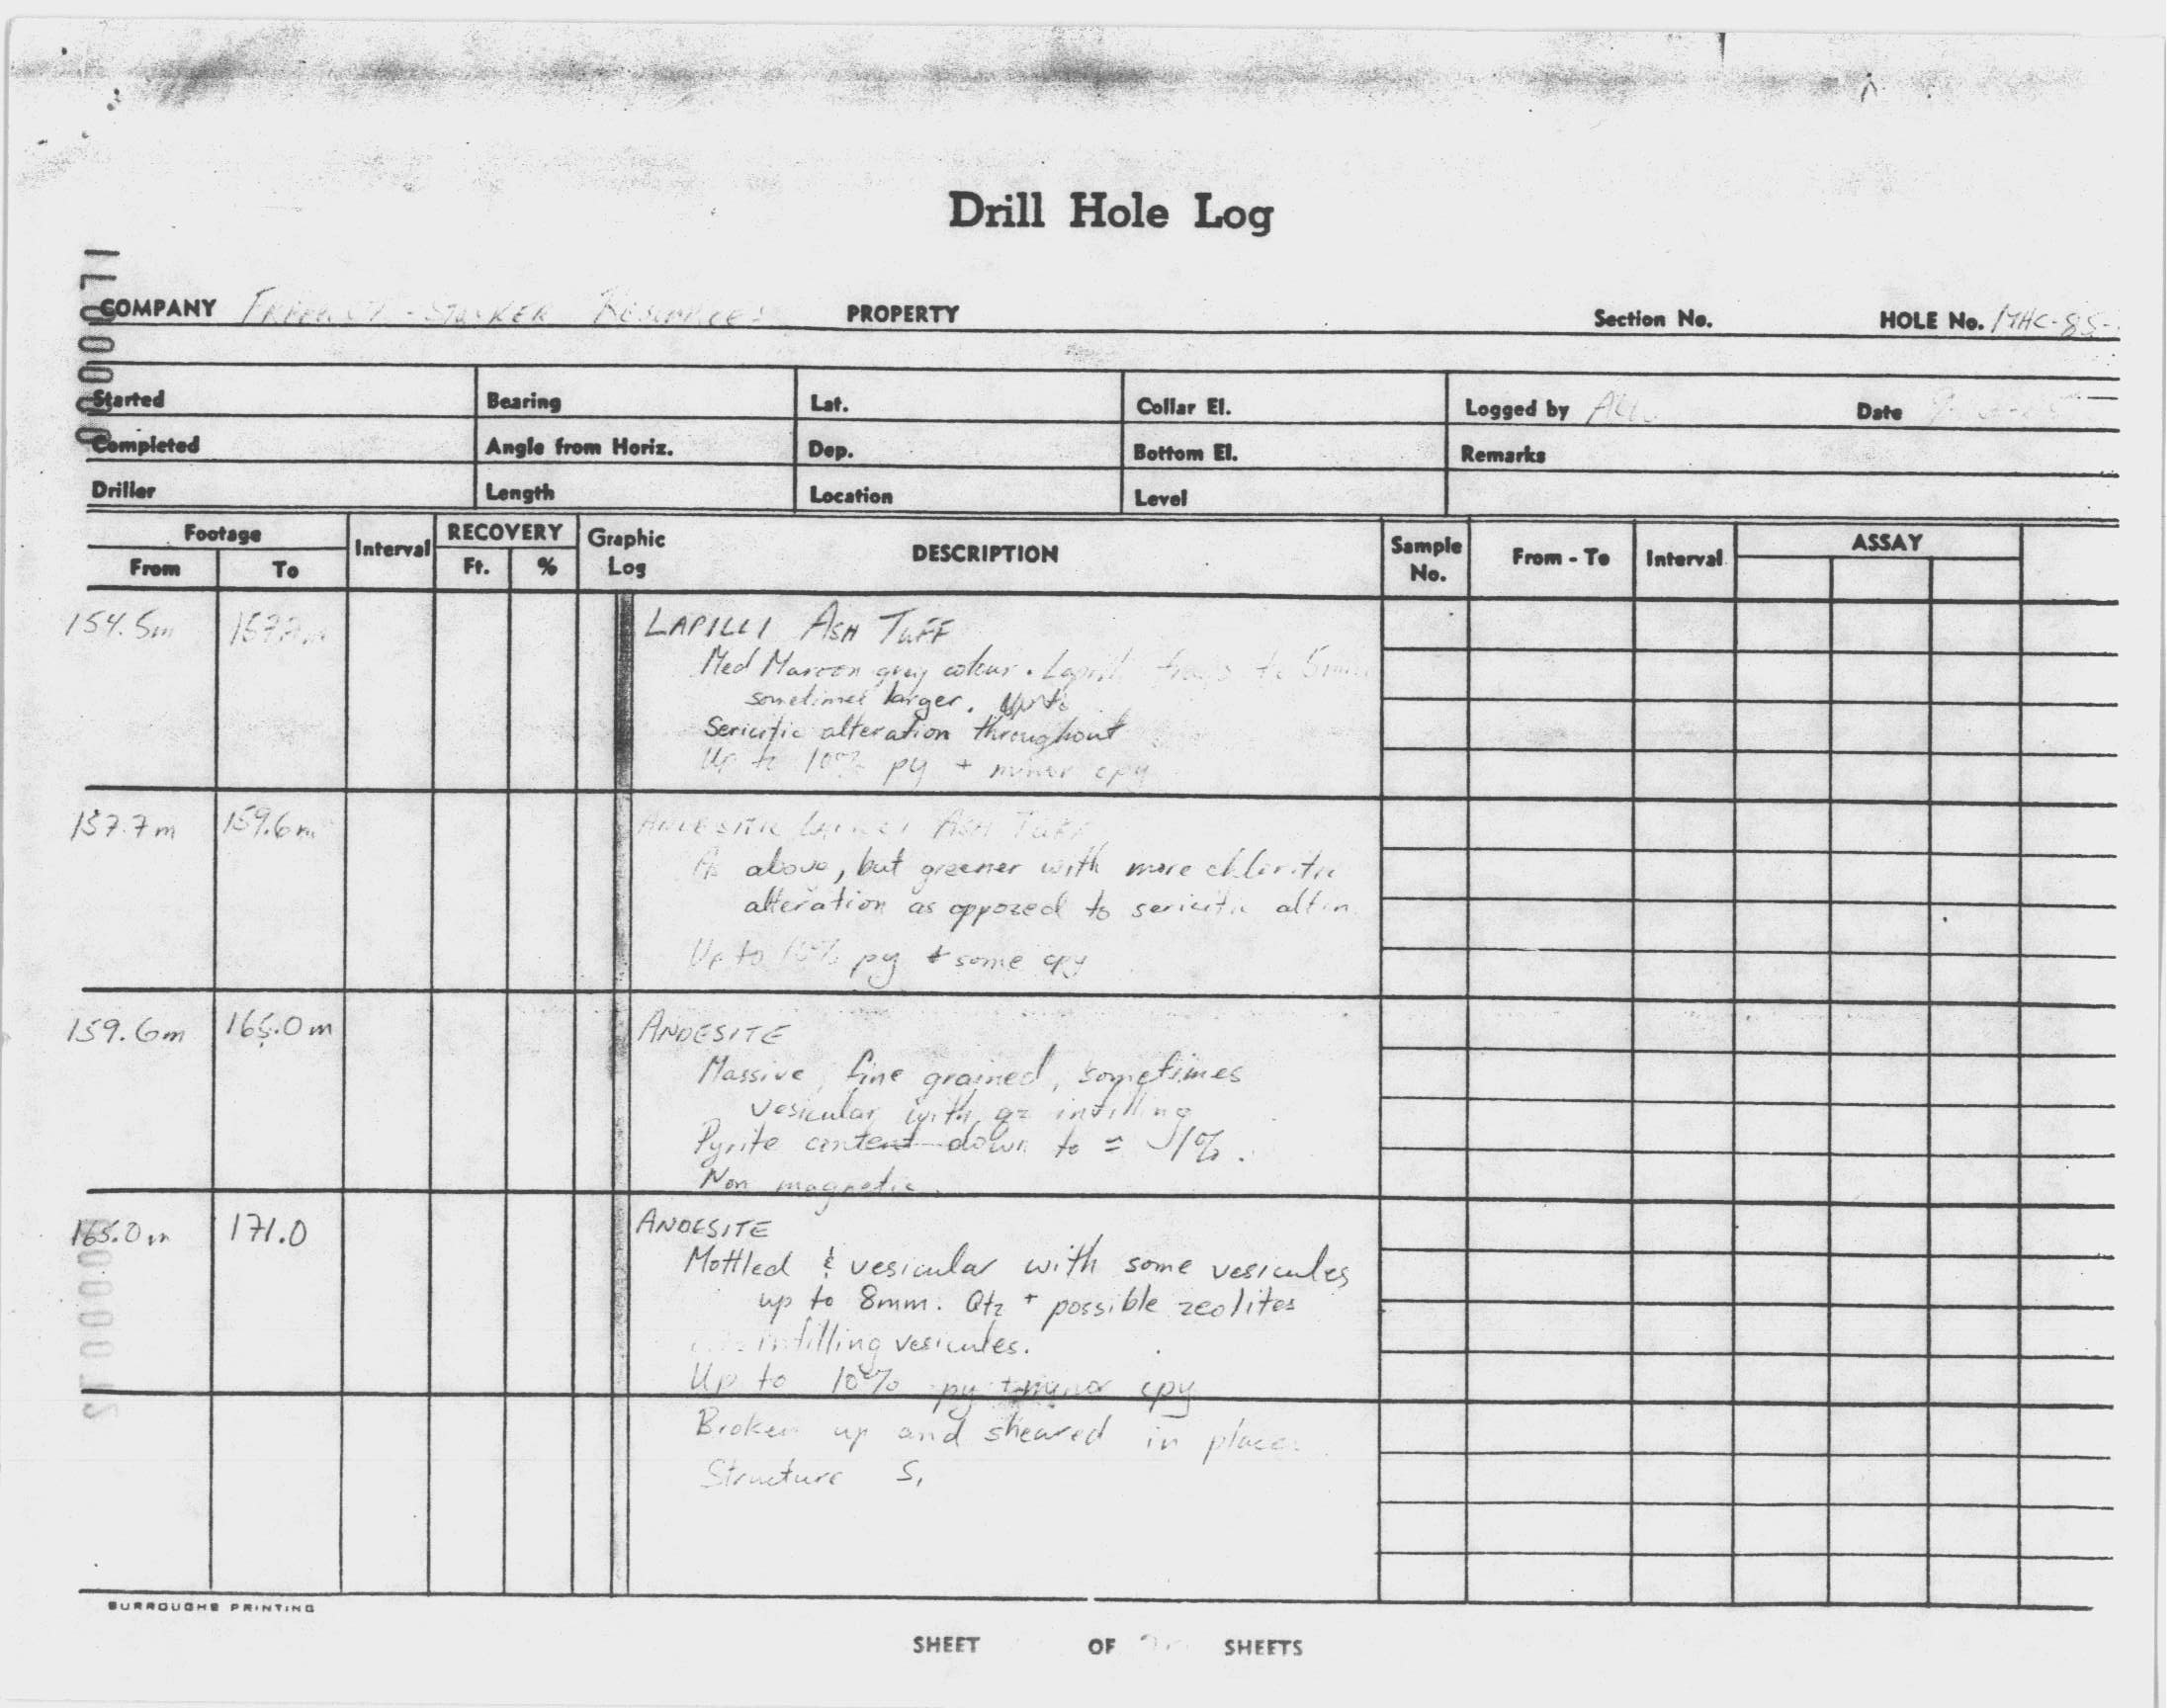 Drill Hole Log
COMPANY STRIKER RESOURCES PROPERTY Section No. HOLE No. MHC-85-
Started Bearing Lat. Collar El. Logged by Date
Completed Angle from Horiz. Dep. Bottom El. Remarks
Driller Length Location Level
Footage Interval RECOVERY Graphic Log DESCRIPTION Sample No. From - To Interval ASSAY
From To Ft. %
154.5m 157.7m LAPILLI ASH TUFF
Med Maroon grey colour. Lapilli frags to 5mm
sometimes larger.
Sericitic alteration throughout
Up to 10% py + minor cpy
157.7m 159.6m ANDESITIC LAPILLI ASH TUFF
As above, but greener with more chloritic
alteration as opposed to sericitic alt'n
Up to 10% py + some cpy
159.6m 165.0m ANDESITE
Massive, fine grained, sometimes
vesicular with qz infilling
Pyrite content down to = 1%.
Non magnetic.
165.0m 171.0 ANDESITE
Mottled & vesicular with some vesicules
up to 8mm. Qtz + possible zeolites
infilling vesicules.
Up to 10% py + minor cpy
Broken up and sheared in places.
Structure S,
BURROUGHS PRINTING
SHEET OF SHEETS
000071
000072